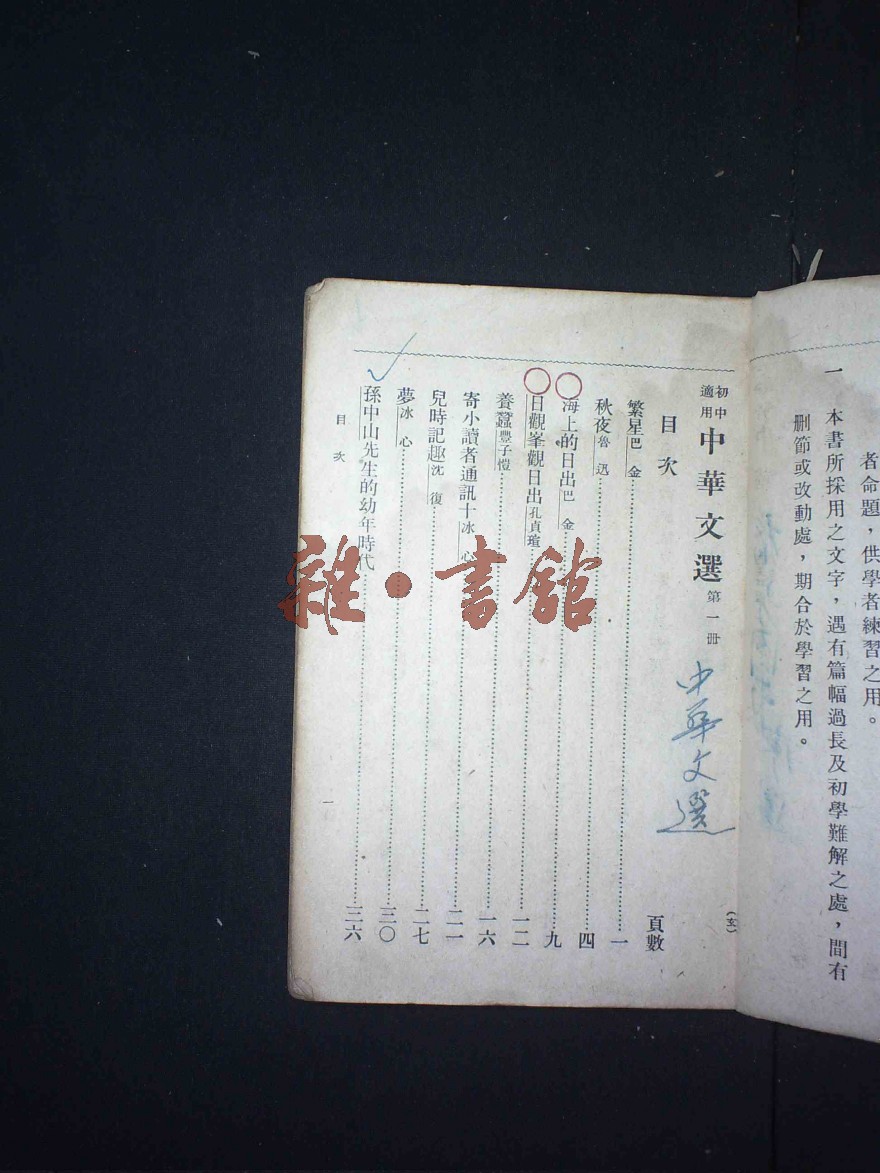 者命題，供學者練習之用。
一 本書所採用之文字，遇有篇幅過長及初學難解之處，間有
刪節或改動處，期合於學習之用。
(玄)
初中適用 中華文選 第一冊
中華文選
目次 頁數
繁星 巴金 一
秋夜 魯迅 四
海上的日出 巴金 九
日觀峯觀日出 孔貞瑄 一二
養蠶 豐子愷 一六
寄小讀者通訊十 冰心 二一
兒時記趣 沈復 二七
夢 冰心 三〇
孫中山先生的幼年時代 三六
目次 一
雜·書館